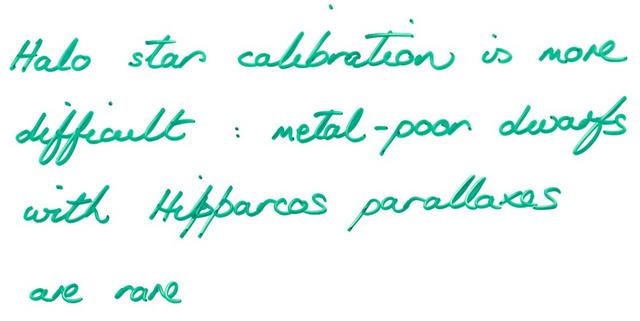 Halo star calibration is more
difficult : metal-poor dwarfs
with Hipparcos parallaxes
are rare